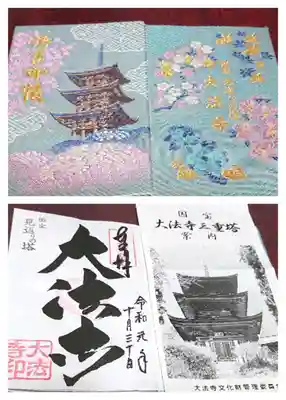 御朱印帳
大法寺
奉拝
令和元年
十月三十日
大法寺
国宝
見返りの塔
大法
寺印
国宝
大法寺三重塔
案内
大法寺文化財管理委員会